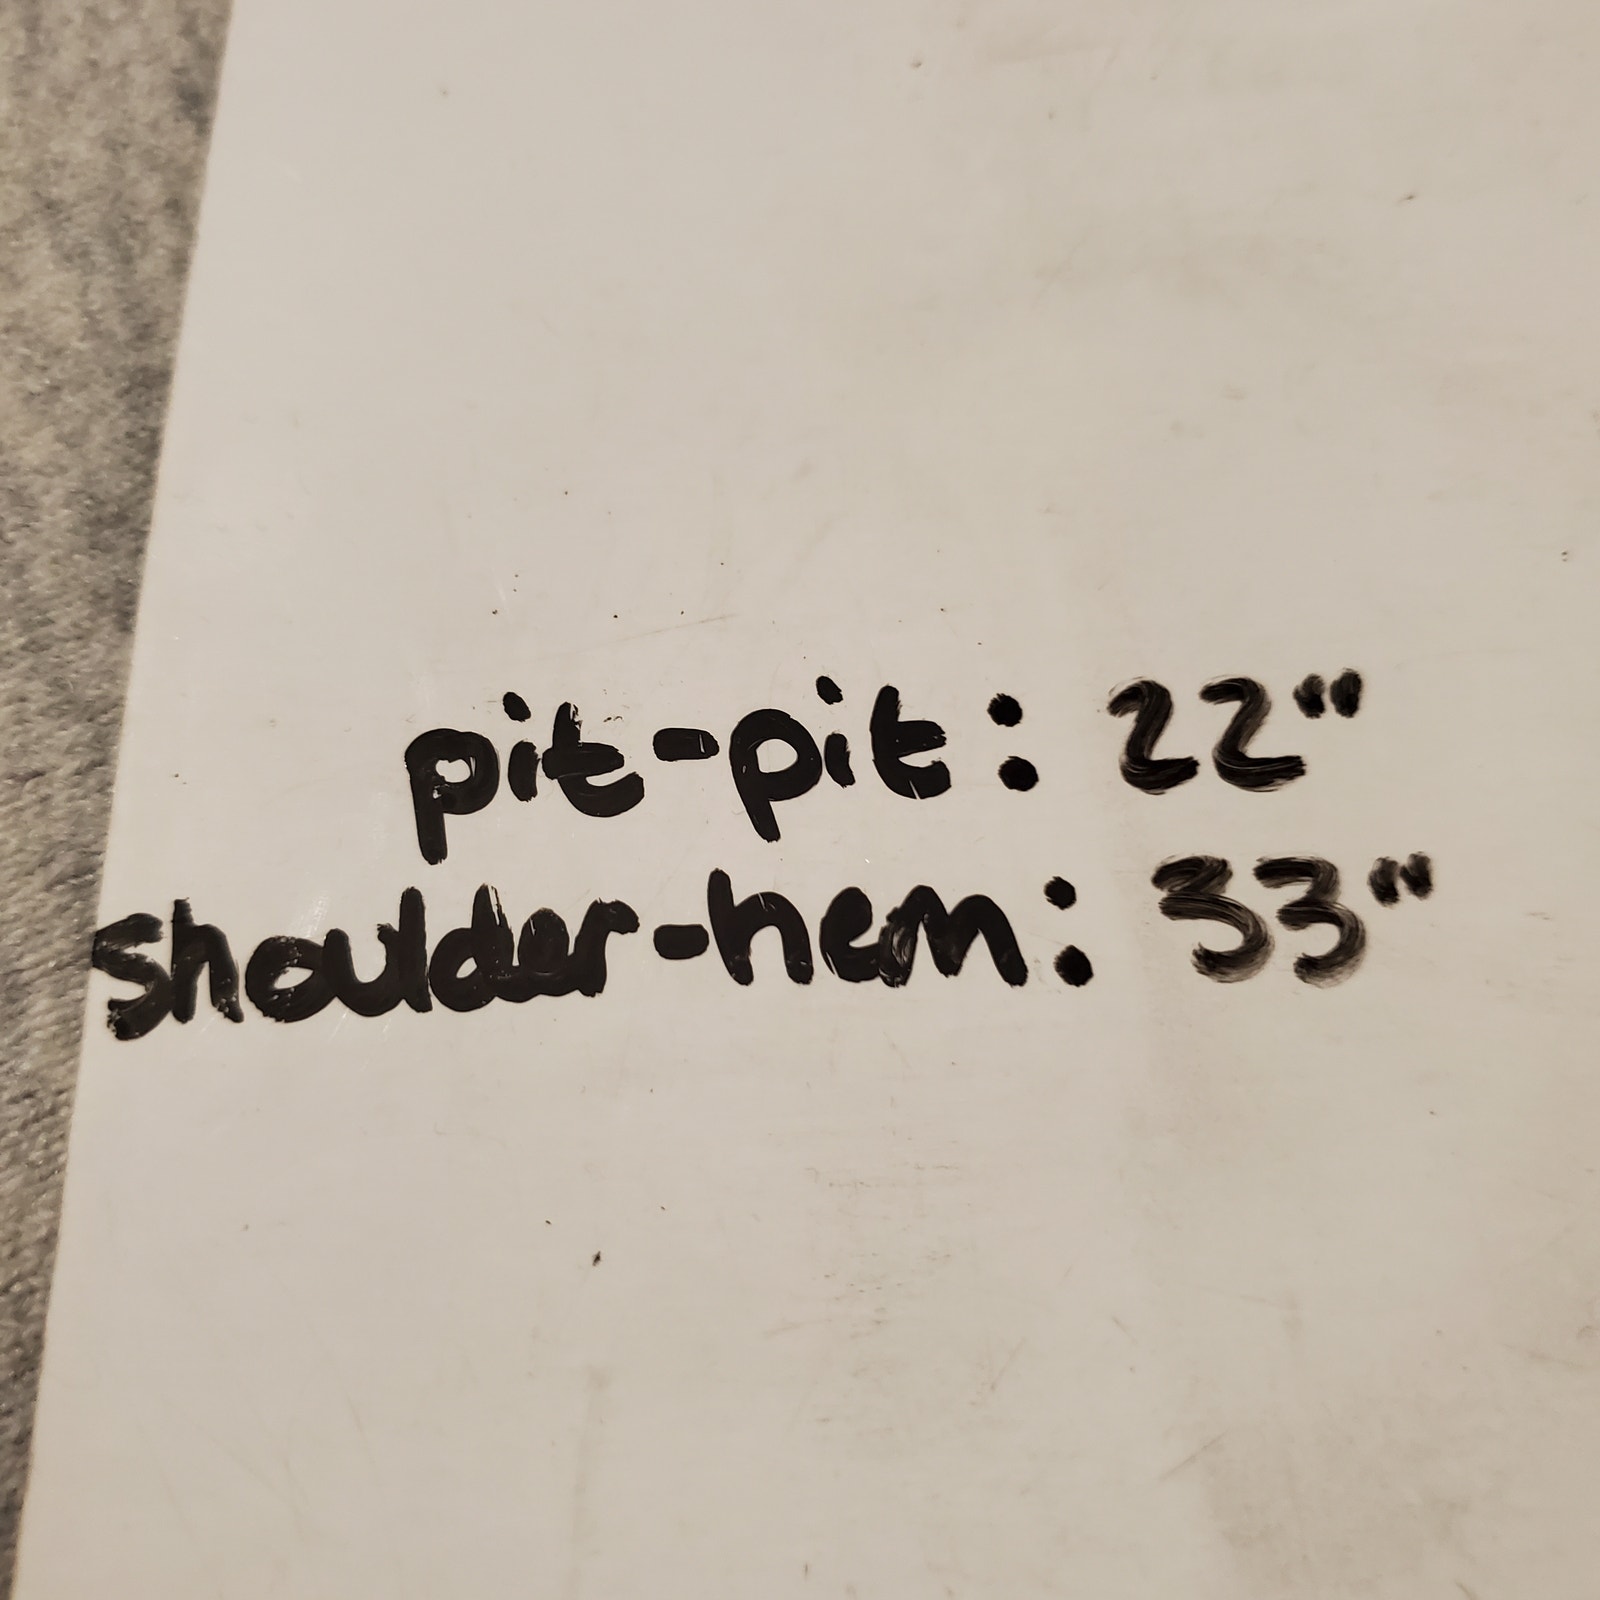 pit-pit: 22"
shoulder-hem: 33"